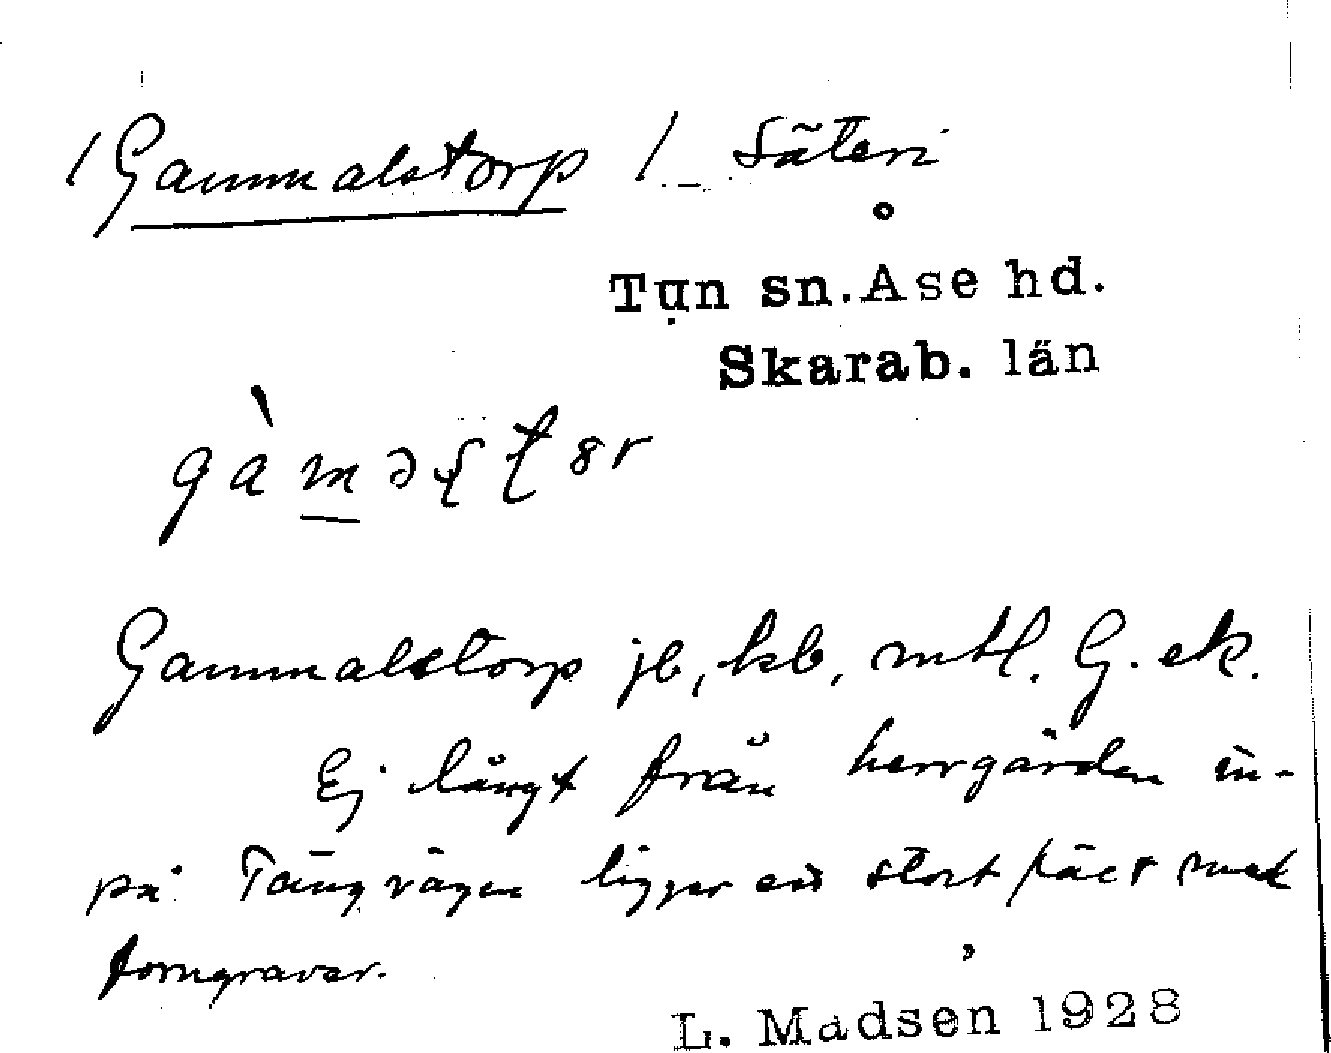 / Gammalstorp / Säteri
Tun sn. Åse hd.
Skarab. län
Gammalstorp jb, kb, mtl. G. ek.
Ej långt från herrgården in-
på Tängvägen ligger ett stort fält med
forngravar.
L. Madsen 1928